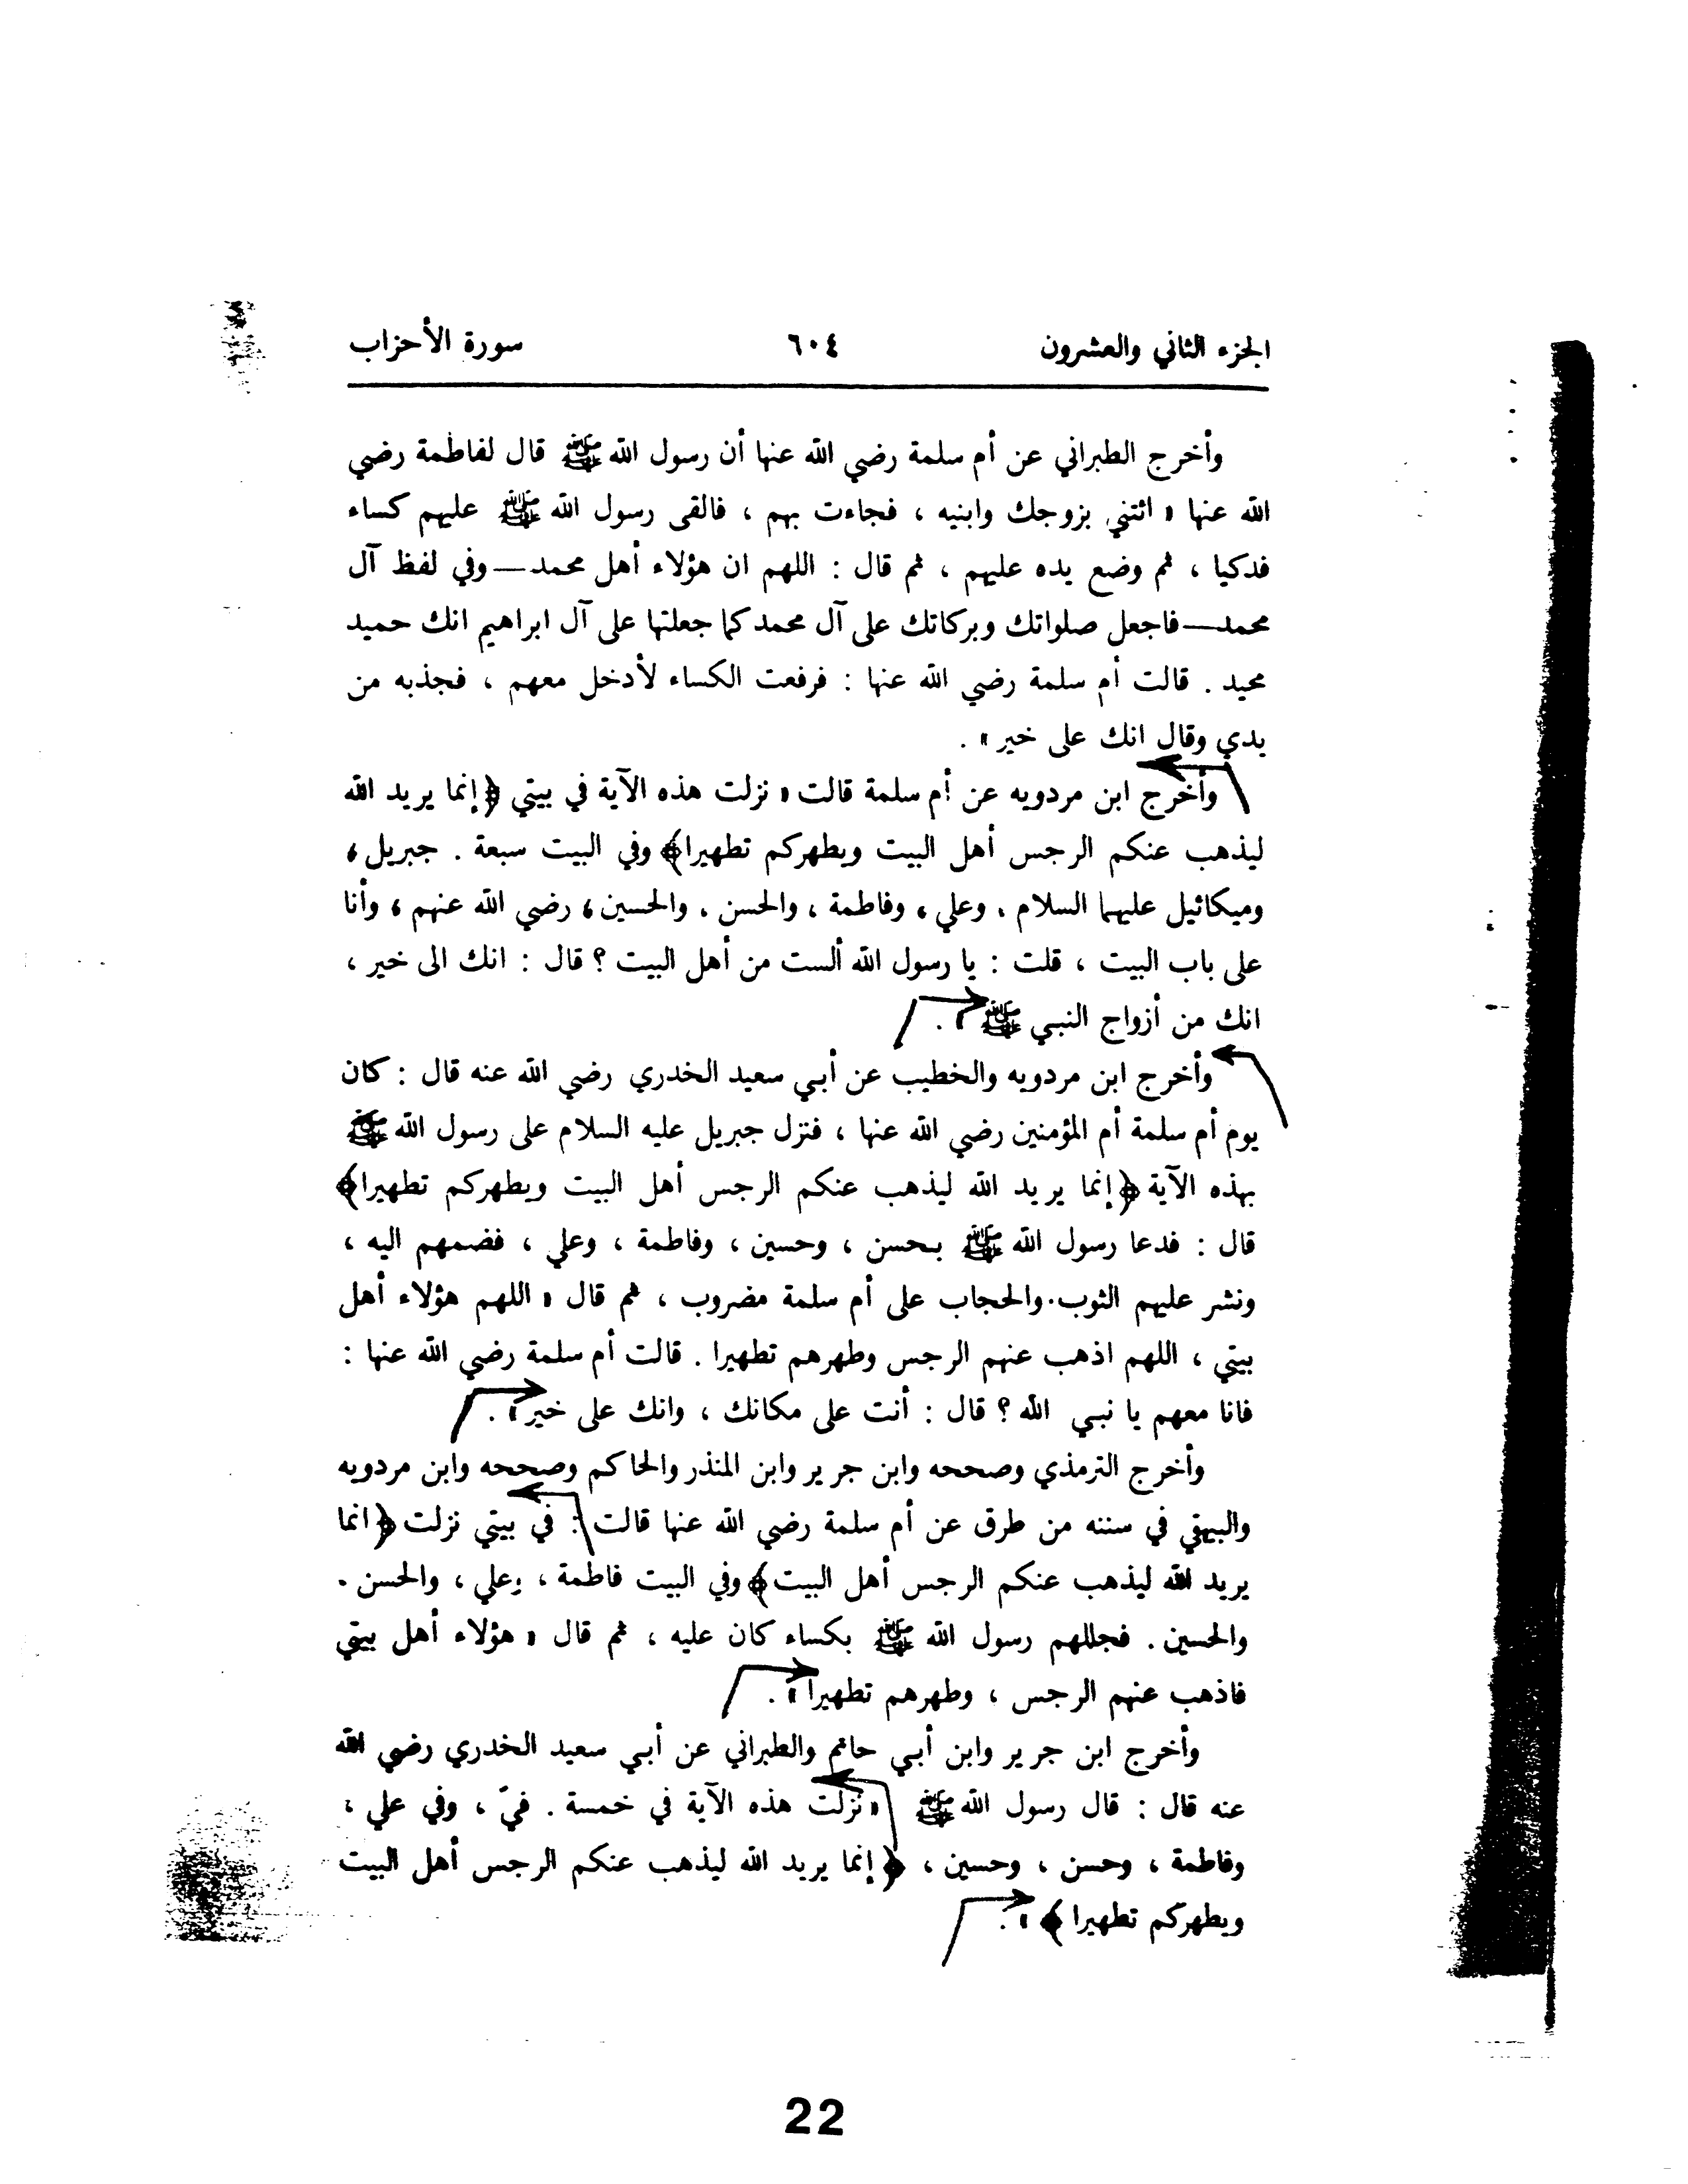 الجزء الثاني والعشرون ٦٠٤ سورة الأحزاب
وأخرج الطبراني عن أم سلمة رضي الله عنها أن رسول الله ﷺ قال لفاطمة رضي
الله عنها « ائتني بزوجك وابنيه ، فجاءت بهم ، فالقى رسول الله ﷺ عليهم كساء
فدكيا ، ثم وضع يده عليهم ، ثم قال : اللهم ان هؤلاء أهل محمد — وفي لفظ آل
محمد — فاجعل صلواتك وبركاتك على آل محمد كما جعلتها على آل ابراهيم انك حميد
مجيد . قالت أم سلمة رضي الله عنها : فرفعت الكساء لأدخل معهم ، فجذبه من
يدي وقال انك على خير » .
وأخرج ابن مردويه عن أم سلمة قالت « نزلت هذه الآية في بيتي ﴿إنما يريد الله
ليذهب عنكم الرجس أهل البيت ويطهركم تطهيرا﴾ وفي البيت سبعة . جبريل ،
وميكائيل عليهما السلام ، وعلي ، وفاطمة ، والحسن ، والحسين ، رضي الله عنهم ، وأنا
على باب البيت ، قلت : يا رسول الله ألست من أهل البيت ؟ قال : انك الى خير ،
انك من أزواج النبي ﷺ » .
وأخرج ابن مردويه والخطيب عن أبي سعيد الخدري رضي الله عنه قال : كان
يوم أم سلمة أم المؤمنين رضي الله عنها ، فنزل جبريل عليه السلام على رسول الله ﷺ
بهذه الآية ﴿إنما يريد الله ليذهب عنكم الرجس أهل البيت ويطهركم تطهيرا﴾
قال : فدعا رسول الله ﷺ بحسن ، وحسين ، وفاطمة ، وعلي ، فضمهم اليه ،
ونشر عليهم الثوب. والحجاب على أم سلمة مضروب ، ثم قال « اللهم هؤلاء أهل
بيتي ، اللهم اذهب عنهم الرجس وطهرهم تطهيرا . قالت أم سلمة رضي الله عنها :
فانا معهم يا نبي الله ؟ قال : أنت على مكانك ، وانك على خير » .
وأخرج الترمذي وصححه وابن جرير وابن المنذر والحاكم وصححه وابن مردويه
والبيهقي في سننه من طرق عن أم سلمة رضي الله عنها قالت : في بيتي نزلت ﴿انما
يريد الله ليذهب عنكم الرجس أهل البيت﴾ وفي البيت فاطمة ، وعلي ، والحسن .
والحسين . فجللهم رسول الله ﷺ بكساء كان عليه ، ثم قال « هؤلاء أهل بيتي
فاذهب عنهم الرجس ، وطهرهم تطهيرا » .
وأخرج ابن جرير وابن أبي حاتم والطبراني عن أبي سعيد الخدري رضي الله
عنه قال : قال رسول الله ﷺ « نزلت هذه الآية في خمسة . فيّ ، وفي علي ،
وفاطمة ، وحسن ، وحسين ، ﴿إنما يريد الله ليذهب عنكم الرجس أهل البيت
ويطهركم تطهيرا ﴾ » .
22